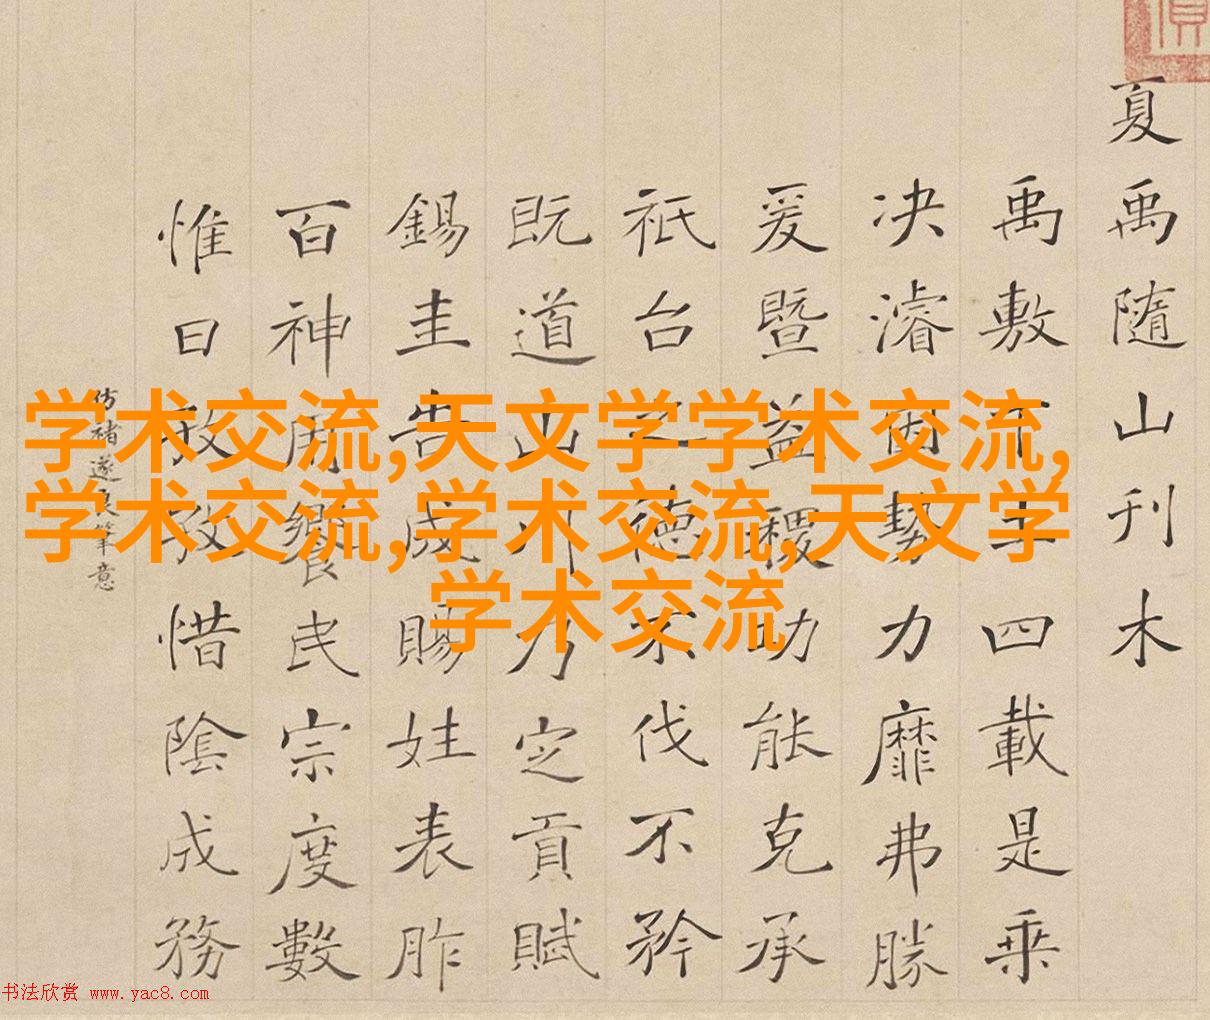 夏禹随山刊木
禹敷下土四載是乘
决濬因勢力靡弗勝
爰暨益稷功能克承
祇台之德不伐不矜
既道山川乃定貢賦
錫圭告成賜姓表胙
百神周饗民宗度數
惟日孜孜惜陰成務
仿褚遂良筆意
学术交流,天文学学术交流,
学术交流,学术交流,天文学
学术交流
书法欣赏 www.yac8.com